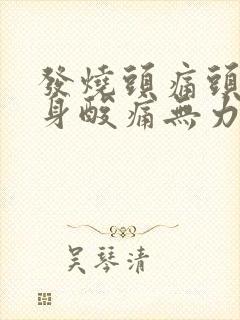 發燒頭痛頭
身酸痛無力
吴琴清